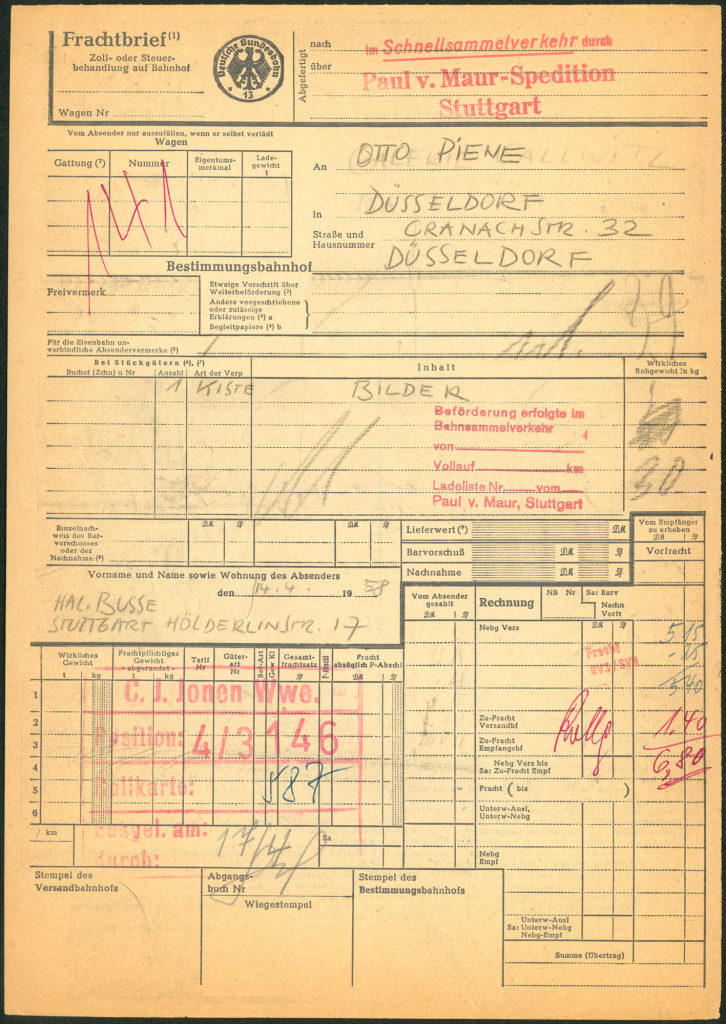 Frachtbrief(1)
Zoll- oder Steuer-
behandlung auf Bahnhof
Wagen Nr
Deutsche Bundesbahn
13
Abgefertigt
nach
über
Im Schnellsammelverkehr durch
Paul v. Maur-Spedition
Stuttgart
Vom Absender nur auszufüllen, wenn er selbst verlädt
Wagen
Gattung (3) Nummer Eigentums-merkmal Lade-gewicht t
An OTTO PIENE
DÜSSELDORF
in
Straße und Hausnummer
CRANACHSTR. 32
DÜSSELDORF
Bestimmungsbahnhof
Freivermerk
Etwaige Vorschrift über
Weiterbeförderung (2)
Andere vorgeschriebene
oder zulässige
Erklärungen (4) a
Begleitpapiere (4) b
Für die Eisenbahn un-
verbindliche Absendervermerke (5)
Bei Stückgütern (6), (7) Inhalt Wirkliches
Buchst (Zchn) u Nr Anzahl Art der Verp Rohgewicht in kg
1 KISTE BILDER
30
Beförderung erfolgte im
Bahnsammelverkehr
von
Vollauf km
Ladeliste Nr. vom
Paul v. Maur, Stuttgart
Einzelnach-
weis des Bar-
vorschusses
oder der
Nachnahme (8)
DM Pf DM Pf
Lieferwert (9) DM Pf
Barvorschuß DM Pf
Nachnahme DM Pf
Vom Empfänger
zu erheben
DM Pf
Vorfracht
Vorname und Name sowie Wohnung des Absenders
den 14.4. 1958
HAL. BUSSE
STUTTGART HÖLDERLINSTR. 17
Vom Absender
gezahlt
DM Pf
Rechnung NB Nr Sa: Barv
Nachn
Vorfr
DM Pf
Nebg Vers
5,15
-,25
5,40
Fracht
Zu-Fracht
Versandbf
1.40
Zu-Fracht
Empfangsbf
6,80
Nebg Vers bis
Sa: Zu-Fracht Empf
Fracht ( bis )
Unterw-Ausl,
Unterw-Nebg
Nebg
Empf
Unterw-Ausl
Sa: Unterw-Nebg
Nebg-Empf
Summe (Übertrag)
Wirkliches
Gewicht
t kg
Frachtpflichtiges
Gewicht
- abgerundet -
t kg
Tarif
Nr
Güter-
art
Nr
Bef-Art
Gew Kl
Gesamt-
frachtsatz
Pf
P-Abschl
Fracht
abzüglich P-Abschl
DM Pf
1
2
3
4
5
6
C. J. Jonen Wwe.
Position: 4/3146
Rollkarte:
587
Ausgel. am: 17/4
durch:
/ km
Sa
Stempel des
Versandbahnhofs
Abgangs-
buch Nr
Wiegestempel
Stempel des
Bestimmungsbahnhofs